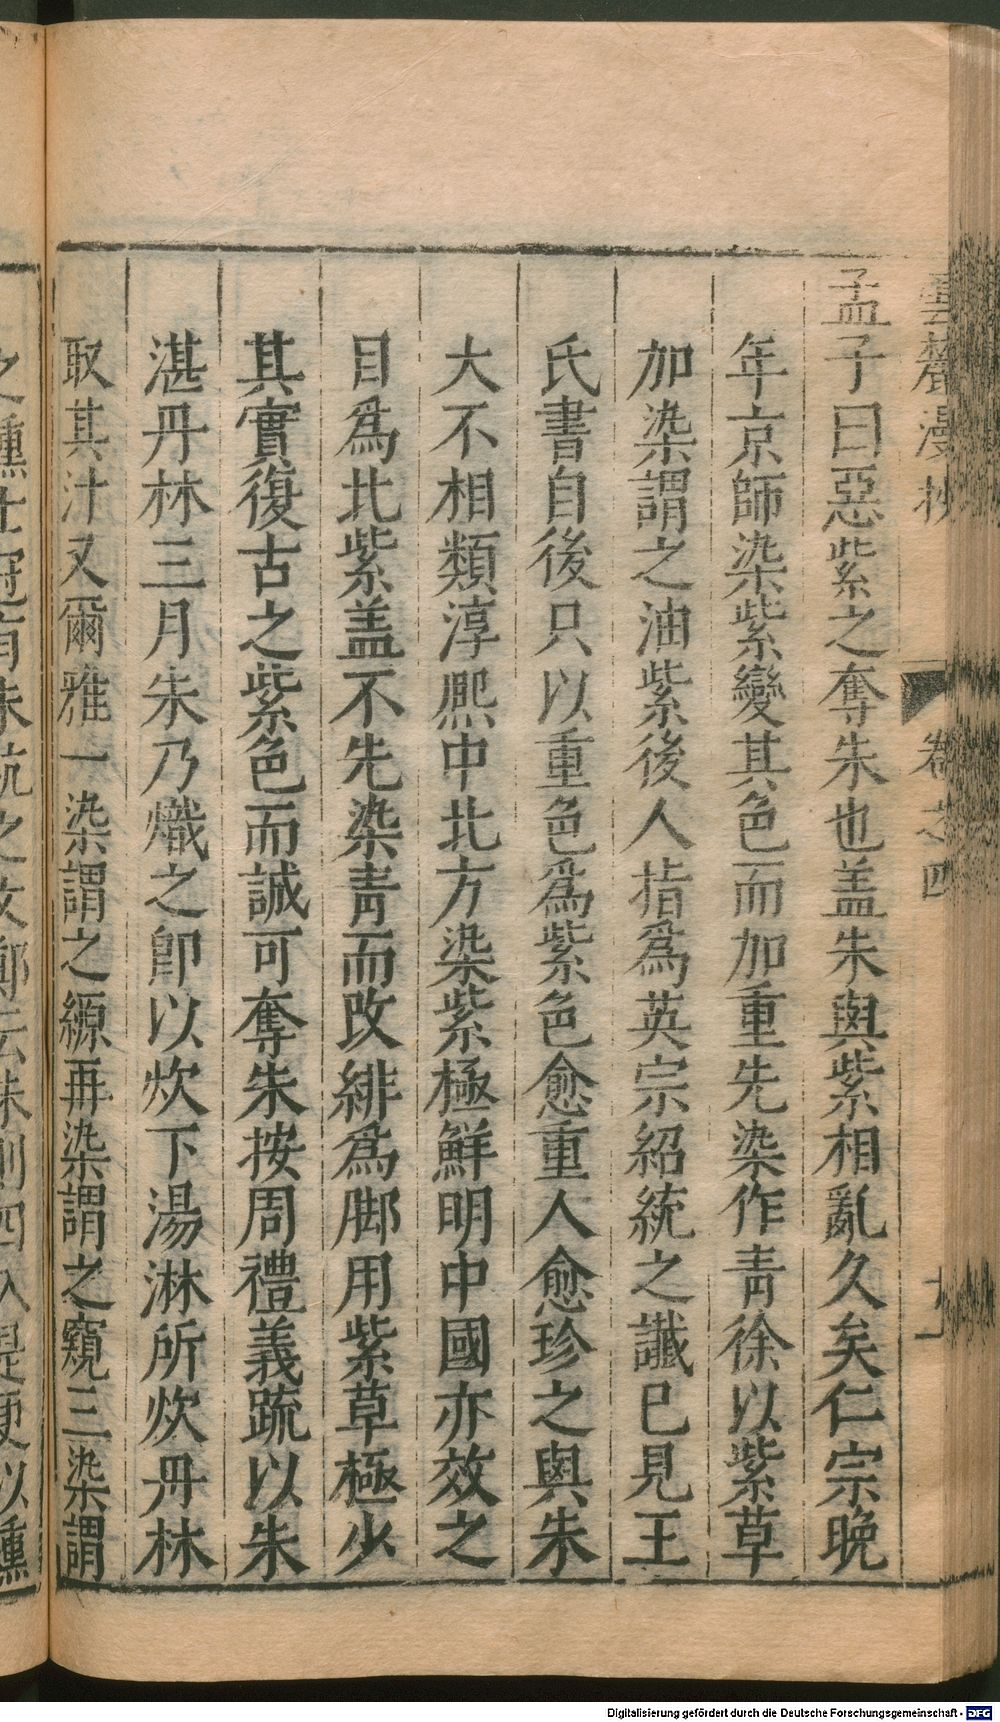 雲麓漫抄 卷之四
孟子曰惡紫之奪朱也盖朱與紫相亂久矣仁宗晚
年京師染紫變其色而加重先染作青徐以紫草
加染謂之油紫後人指爲英宗紹統之讖已見王
氏書自後只以重色爲紫色愈重人愈珍之與朱
大不相類淳熈中北方染紫極鮮明中國亦效之
目爲北紫盖不先染青而改緋爲脚用紫草極少
其實復古之紫色而誠可奪朱按周禮義疏以朱
湛丹林三月朱乃熾之卽以炊下湯淋所炊丹林
取其汁又爾雅一染謂之縓再染謂之窺三染謂
Digitalisierung gefördert durch die Deutsche Forschungsgemeinschaft - DFG